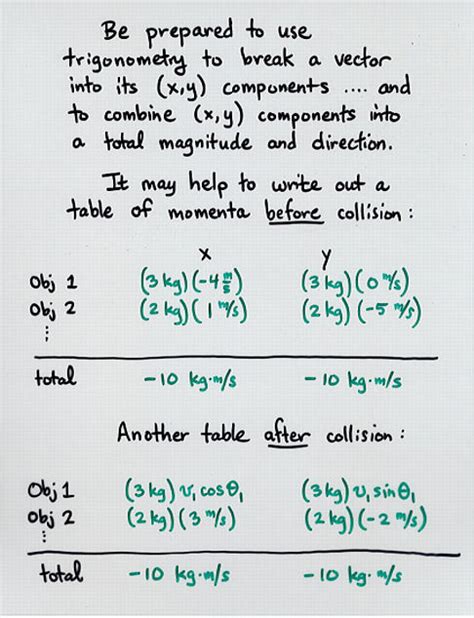 Be prepared to use
trigonometry to break a vector
into its (x,y) components .... and
to combine (x,y) components into
a total magnitude and direction.
It may help to write out a
table of momenta before collision :
x y
Obj 1 (3 kg)(-4 m/s) (3 kg)(0 m/s)
Obj 2 (2 kg)(1 m/s) (2 kg)(-5 m/s)
⋮
total -10 kg·m/s -10 kg·m/s
Another table after collision :
Obj 1 (3 kg) v₁ cosθ₁ (3 kg) v₁ sinθ₁
Obj 2 (2 kg)(3 m/s) (2 kg)(-2 m/s)
⋮
total -10 kg·m/s -10 kg·m/s